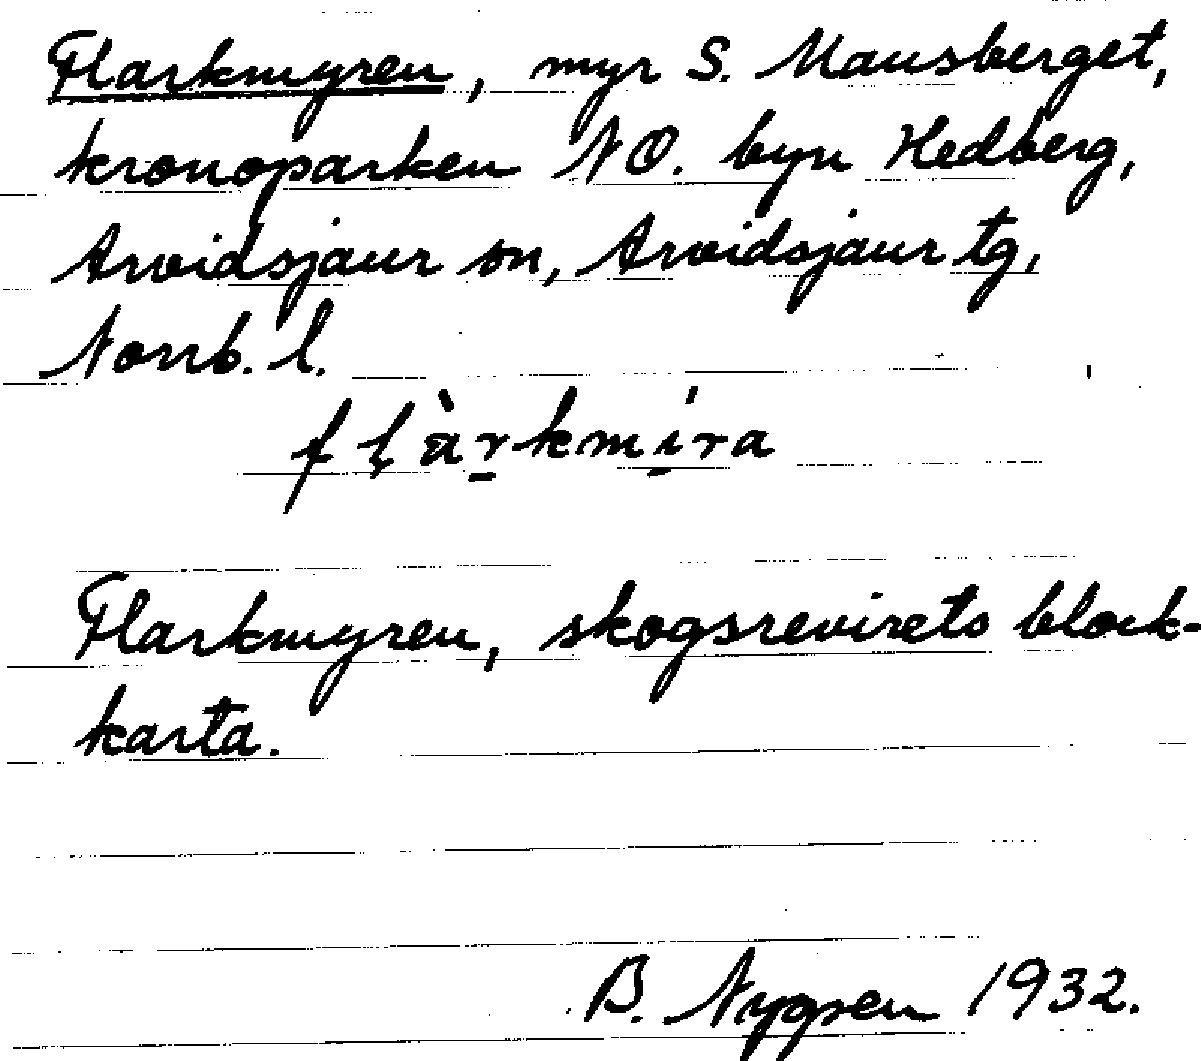 Flarkmyren, myr S. Mausberget,
kronoparken NO. byn Hedberg,
Arvidsjaur sn, Arvidsjaur tg,
Norrb. l.
fḷàr̠kmí̠ra
Flarkmyren, skogsrevirets block-
karta.
B. Nygren 1932.